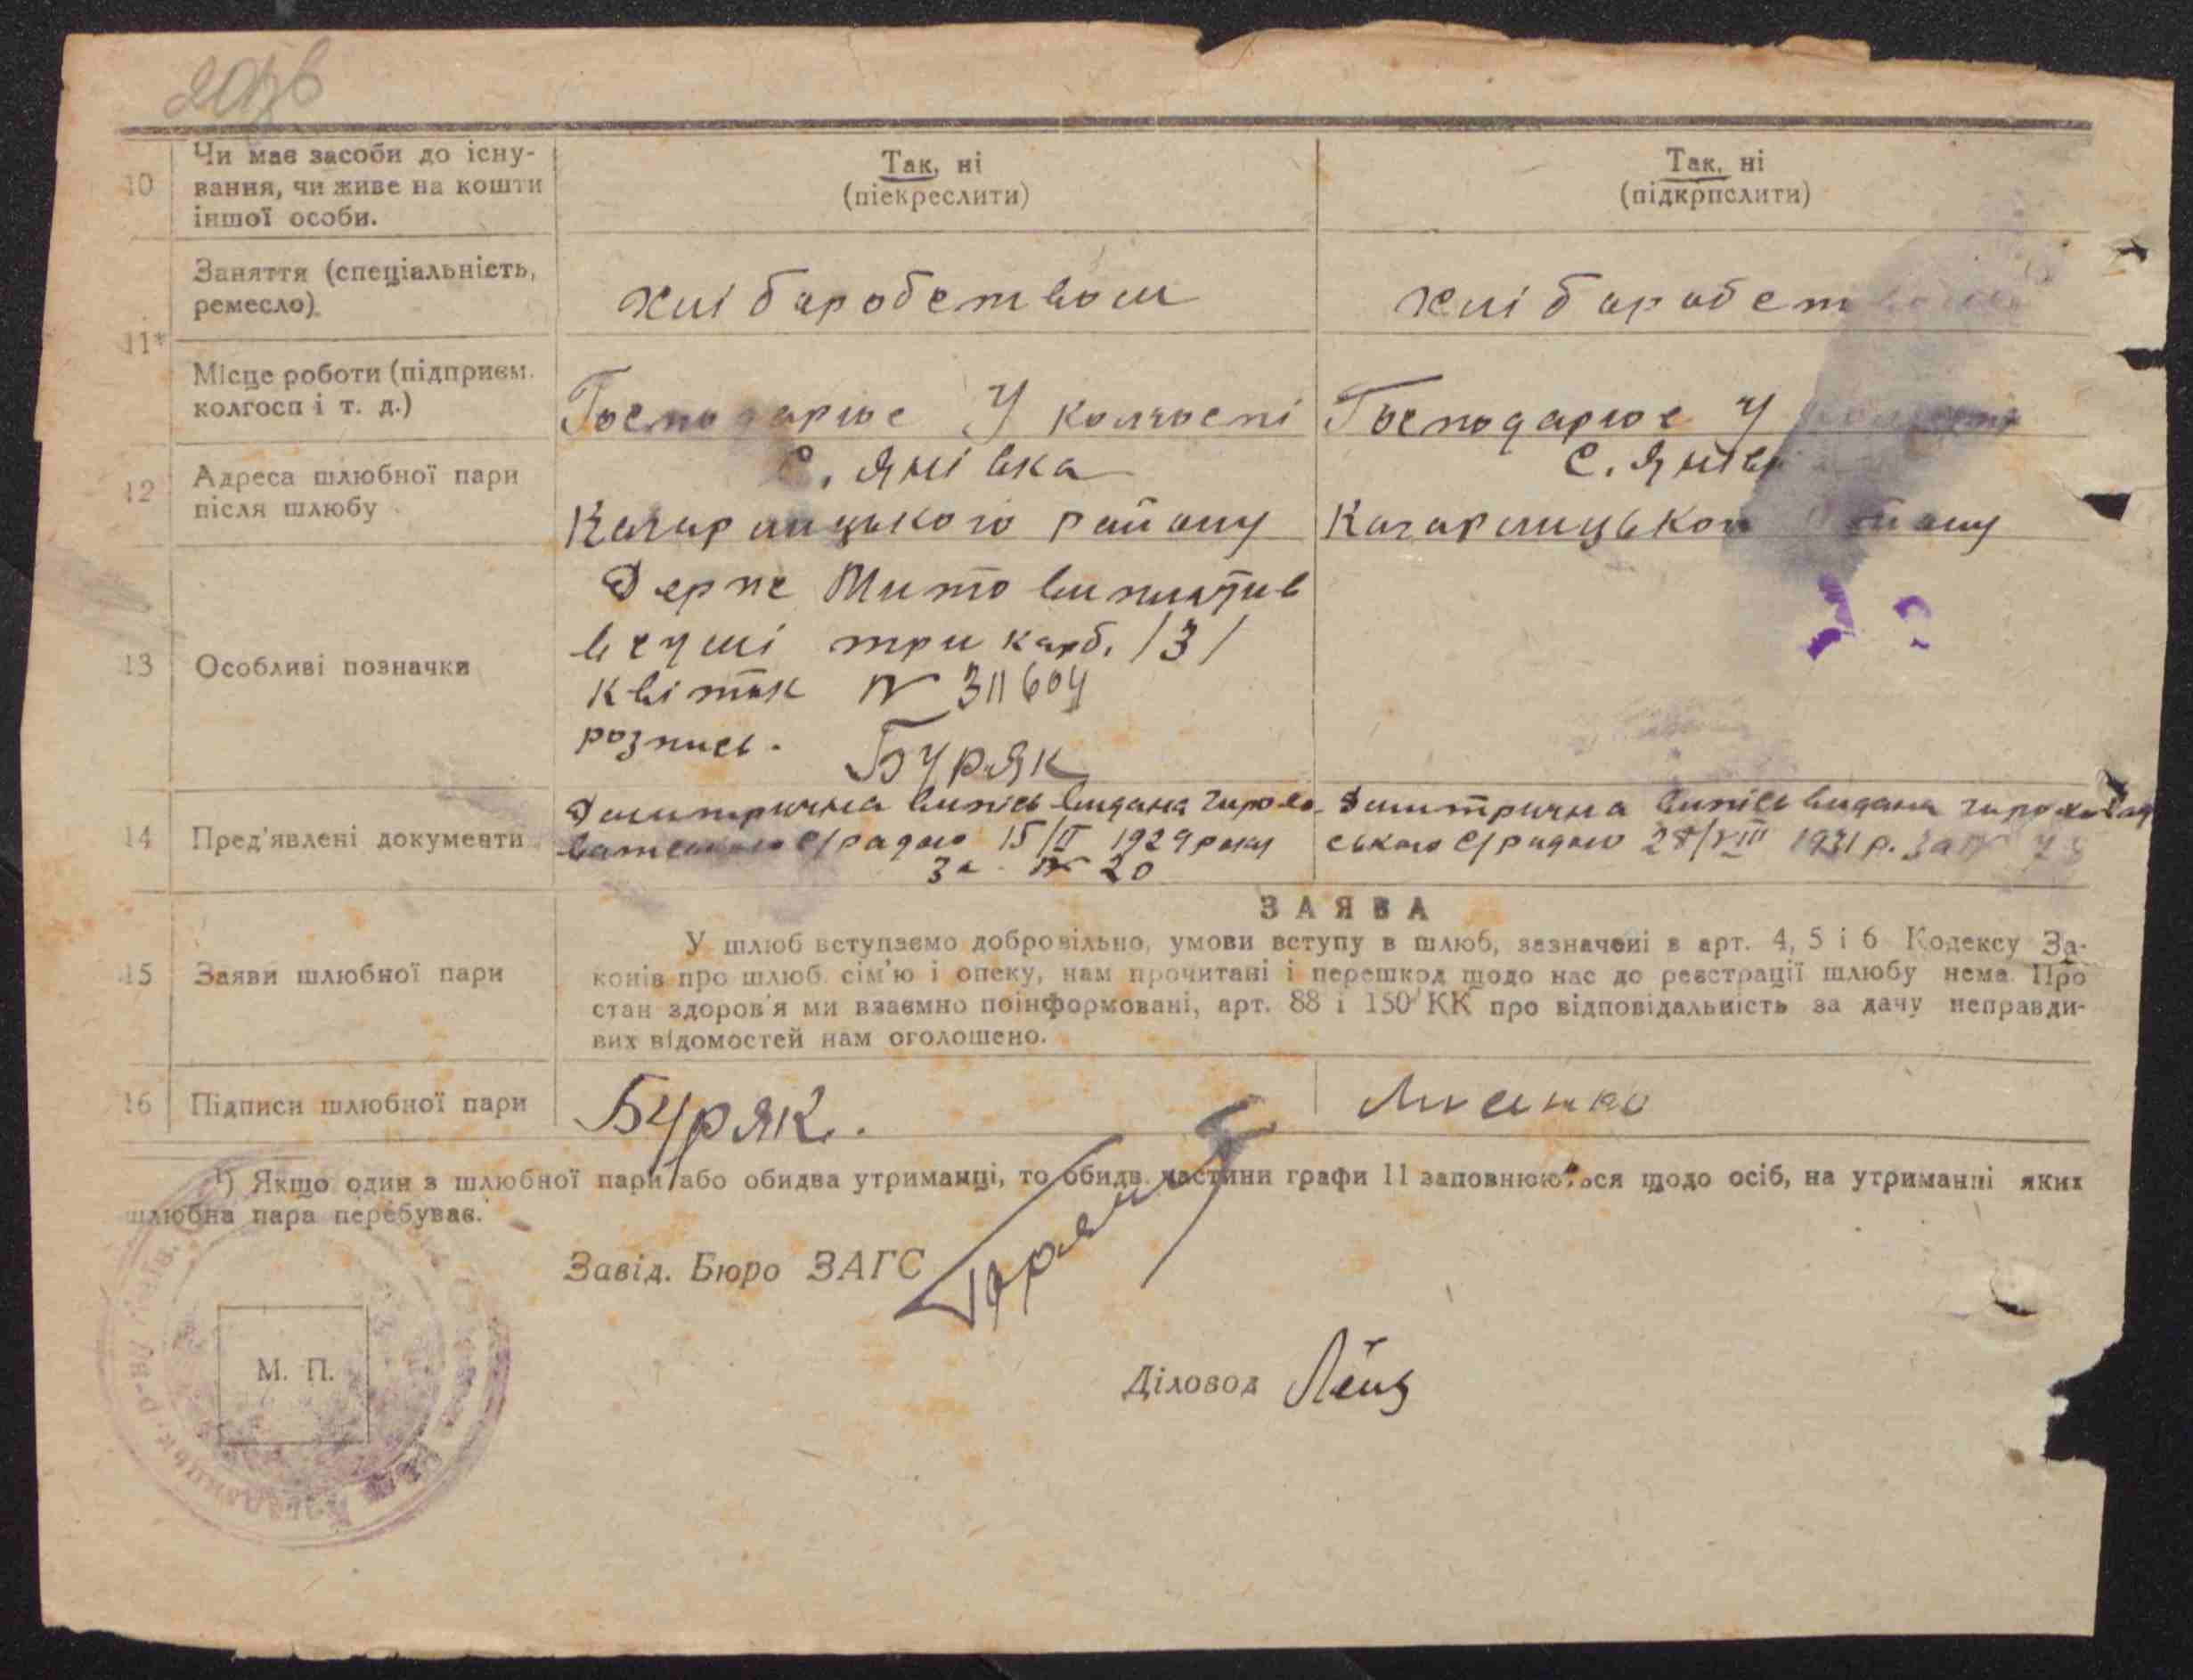 10 Чи має засоби до існу-
вання, чи живе на кошти
іншої особи.
Так, ні
(піекреслити)
Так, ні
(підкрпслити)
11* Заняття (спеціальність,
ремесло).
хлібаробством
хлібаробст
Місце роботи (підприєм.
колгосп і т. д.)
Господарює У колгоспі
Господарює У
12 Адреса шлюбної пари
після шлюбу
С. Янівка
Кагарлицького району
С. Янів
Кагарлицьког
13 Особливі позначки
Держ Мито виплатив
в сумі три карб. /3/
квіток № 311604
розпись. Буряк
14 Пред'явлені документи
видана
с/радою 15/II 1929 року
за № 20
видана
ського с/радою 28/VIII 1931 р. за №
15 Заяви шлюбної пари
ЗАЯВА
У шлюб вступаємо добровільно, умови вступу в шлюб, зазначені в арт. 4, 5 і 6 Кодексу За-
конів про шлюб, сім'ю і опеку, нам прочитані і перешкод щодо нас до реєстрації шлюбу нема. Про
стан здоров'я ми взаємно поінформовані, арт. 88 і 150 КК про відповідальність за дачу неправди-
вих відомостей нам оголошено.
16 Підписи шлюбної пари
Буряк.
Лисенко
¹) Якщо один з шлюбної пари або обидва утриманці, то обидв. частини графи 11 заповнюються щодо осіб, на утриманні яких
шлюбна пара перебуває.
Завід. Бюро ЗАГС
Діловод
М. П.